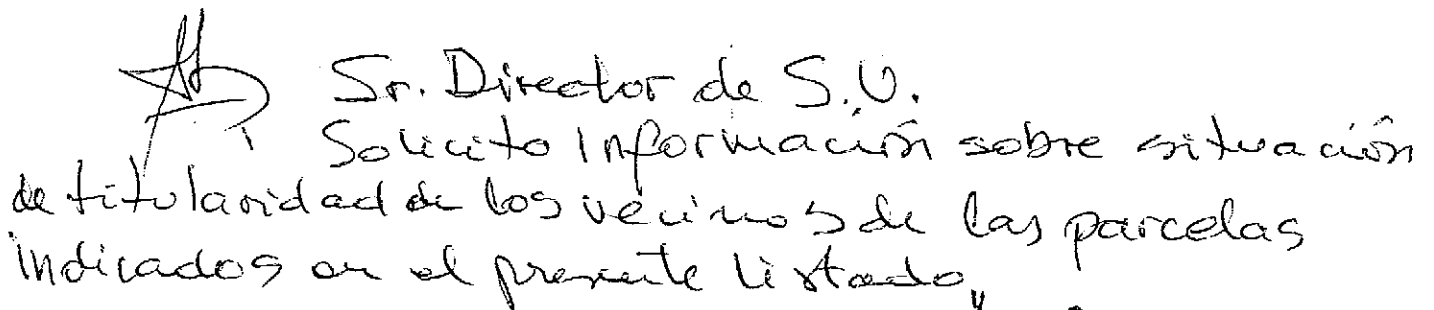 Sr. Director de S.U.
Solicito Información sobre situación
de titularidad de los vecinos de las parcelas
indicados en el presente listado